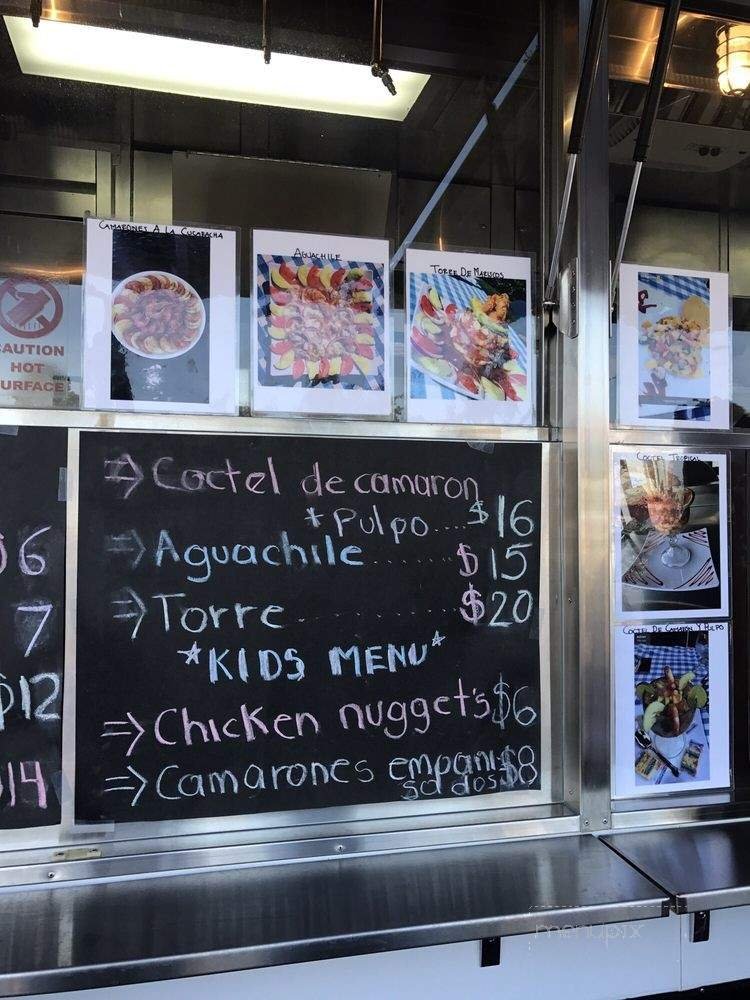 CAMARONES A LA CUCARACHA
AGUACHILE
TORRE DE MARISCOS
CAUTION
HOT
SURFACE
COCTEL TROPICAL
COCTEL DE CAMARON Y PULPO
6
7
$12
14
⇒Coctel de camaron
*Pulpo....$16
⇒Aguachile.......$15
⇒Torre...........$20
*KIDS MENU*
⇒Chicken nugget's $6
⇒Camarones empani $8
sados
menupix